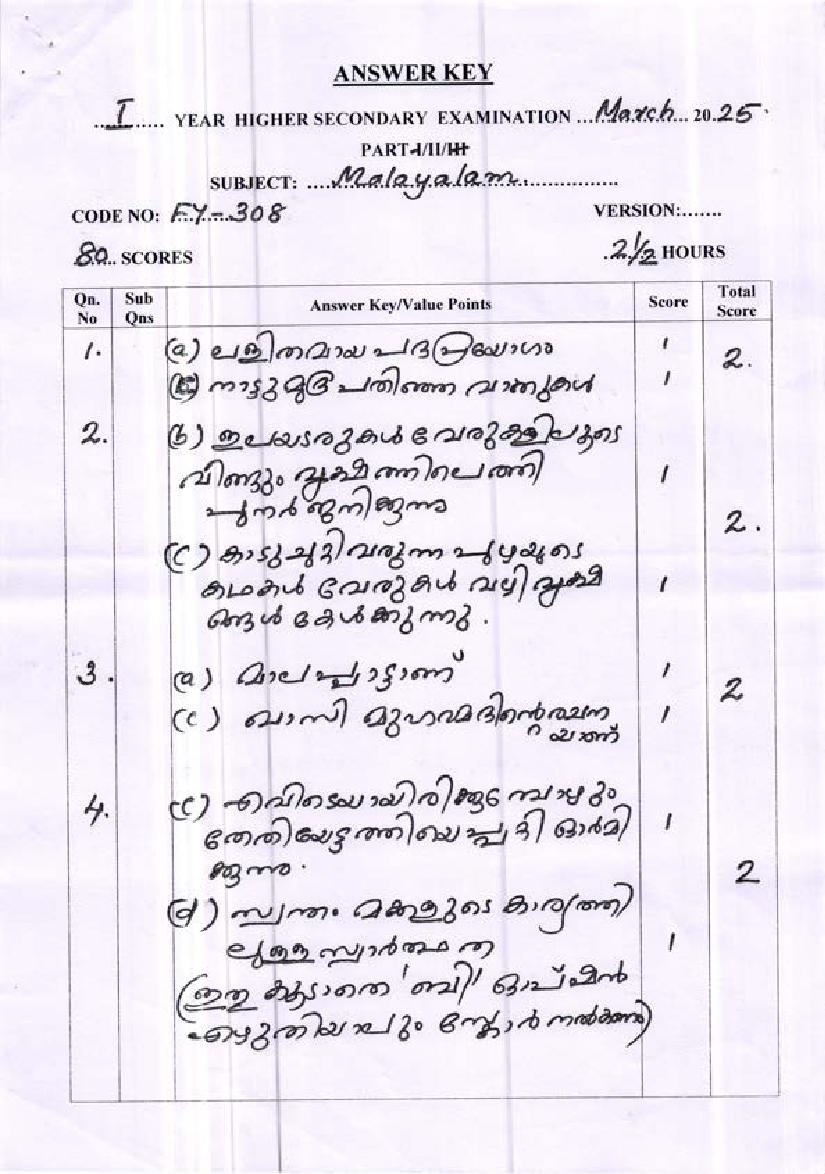 ANSWER KEY
I YEAR HIGHER SECONDARY EXAMINATION March 2025
PART-I/II/III
SUBJECT: Malayalam
CODE NO: FY-308 VERSION:.......
80 SCORES 2½ HOURS
Qn. No Sub Qns Answer Key/Value Points Score Total Score
1. (a) ലളിതമായ പദപ്രയോഗം 1 2.
നാട്ടുമുദ്ര പതിഞ്ഞ വാക്കുകൾ 1
2. (b) ഇലയടരുകൾ വേരുകളിലൂടെ
വീണ്ടും വൃക്ഷത്തിലെത്തി 1
പുനർജനിക്കുന്നു 2.
(c) കാടുചുറ്റിവരുന്ന പുഴയുടെ
കഥകൾ വേരുകൾ വഴി വൃക്ഷ 1
ങ്ങൾ കേൾക്കുന്നു.
3. (a) മാലപ്പാട്ടാണ് 1 2
(c) ഖാസി മുഹമ്മദിന്റെ രചന 1
യാണ്
4. (c) എവിടെയായിരിക്കുമ്പോഴും
തേതിയേട്ടത്തിയെപ്പറ്റി ഓർമി 1
ക്കുന്നു. 2
(d) സ്വന്തം മക്കളുടെ കാര്യത്തി
ലുള്ള സ്വാർത്ഥത 1
(ഇതു കൂടാതെ 'ബി' ഓപ്ഷൻ
എഴുതിയാലും സ്കോർ നൽകണം)